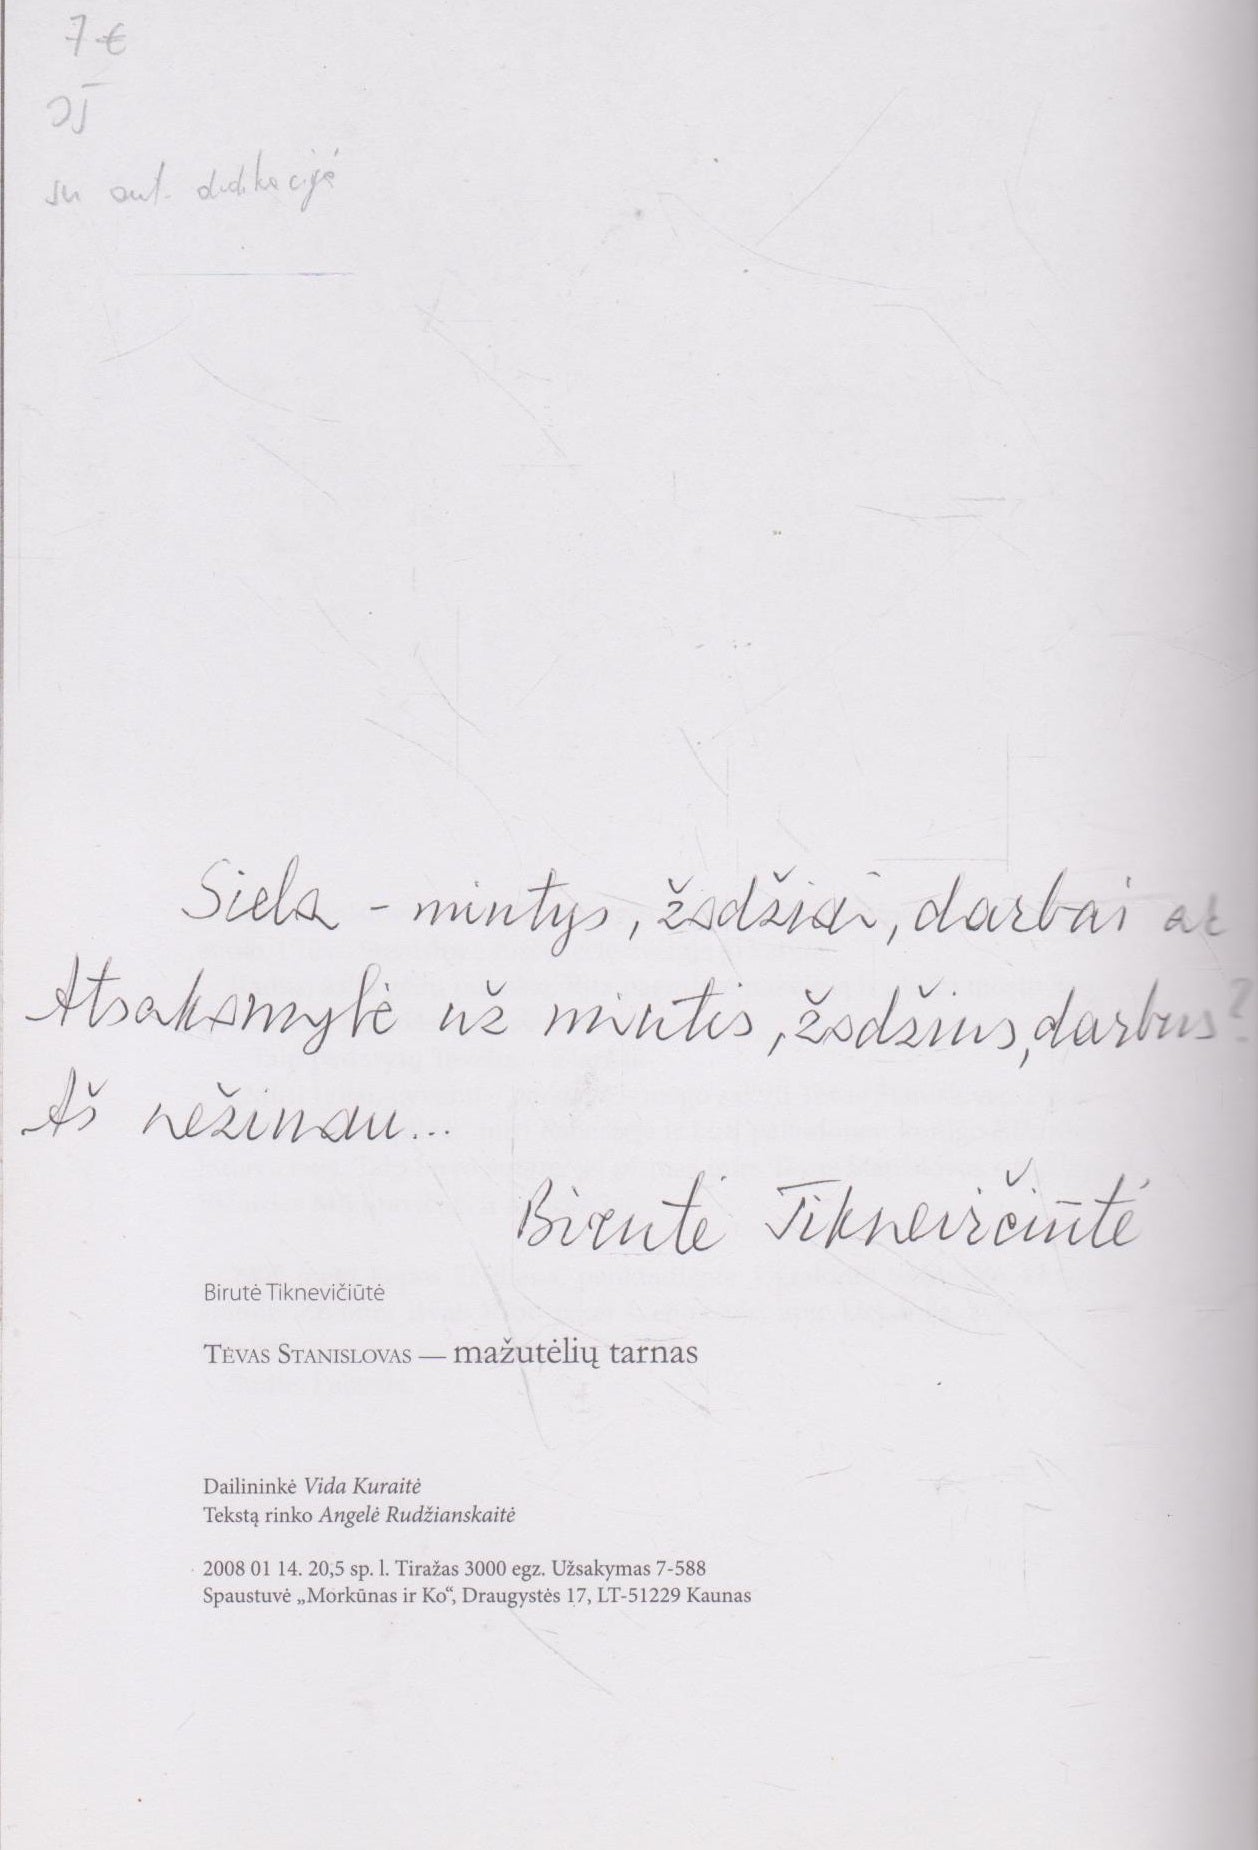 7 €
su aut. dedikacija
Siela - mintys, žodžiai, darbai ar
Atsakomybė už mintis, žodžius, darbus?
Aš nežinau...
Birutė Tiknevičiūtė
Birutė Tiknevičiūtė
Tėvas Stanislovas — mažutėlių tarnas
Dailininkė Vida Kuraitė
Tekstą rinko Angelė Rudžianskaitė
2008 01 14. 20,5 sp. l. Tiražas 3000 egz. Užsakymas 7-588
Spaustuvė „Morkūnas ir Ko“, Draugystės 17, LT-51229 Kaunas